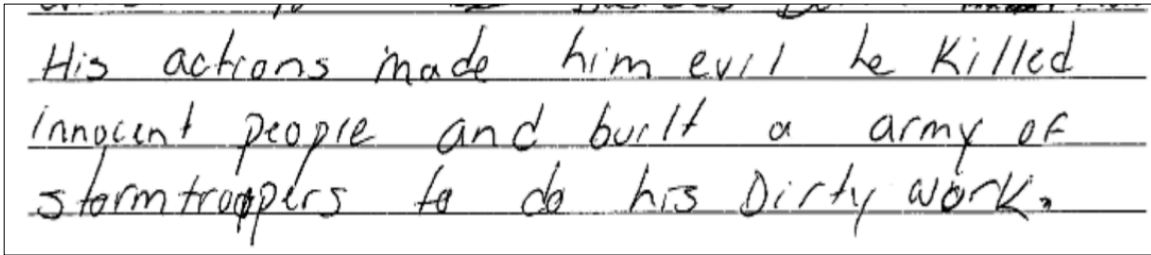 His actions made him evil he killed
innocent people and built a army of
stormtroopers to do his Dirty work.